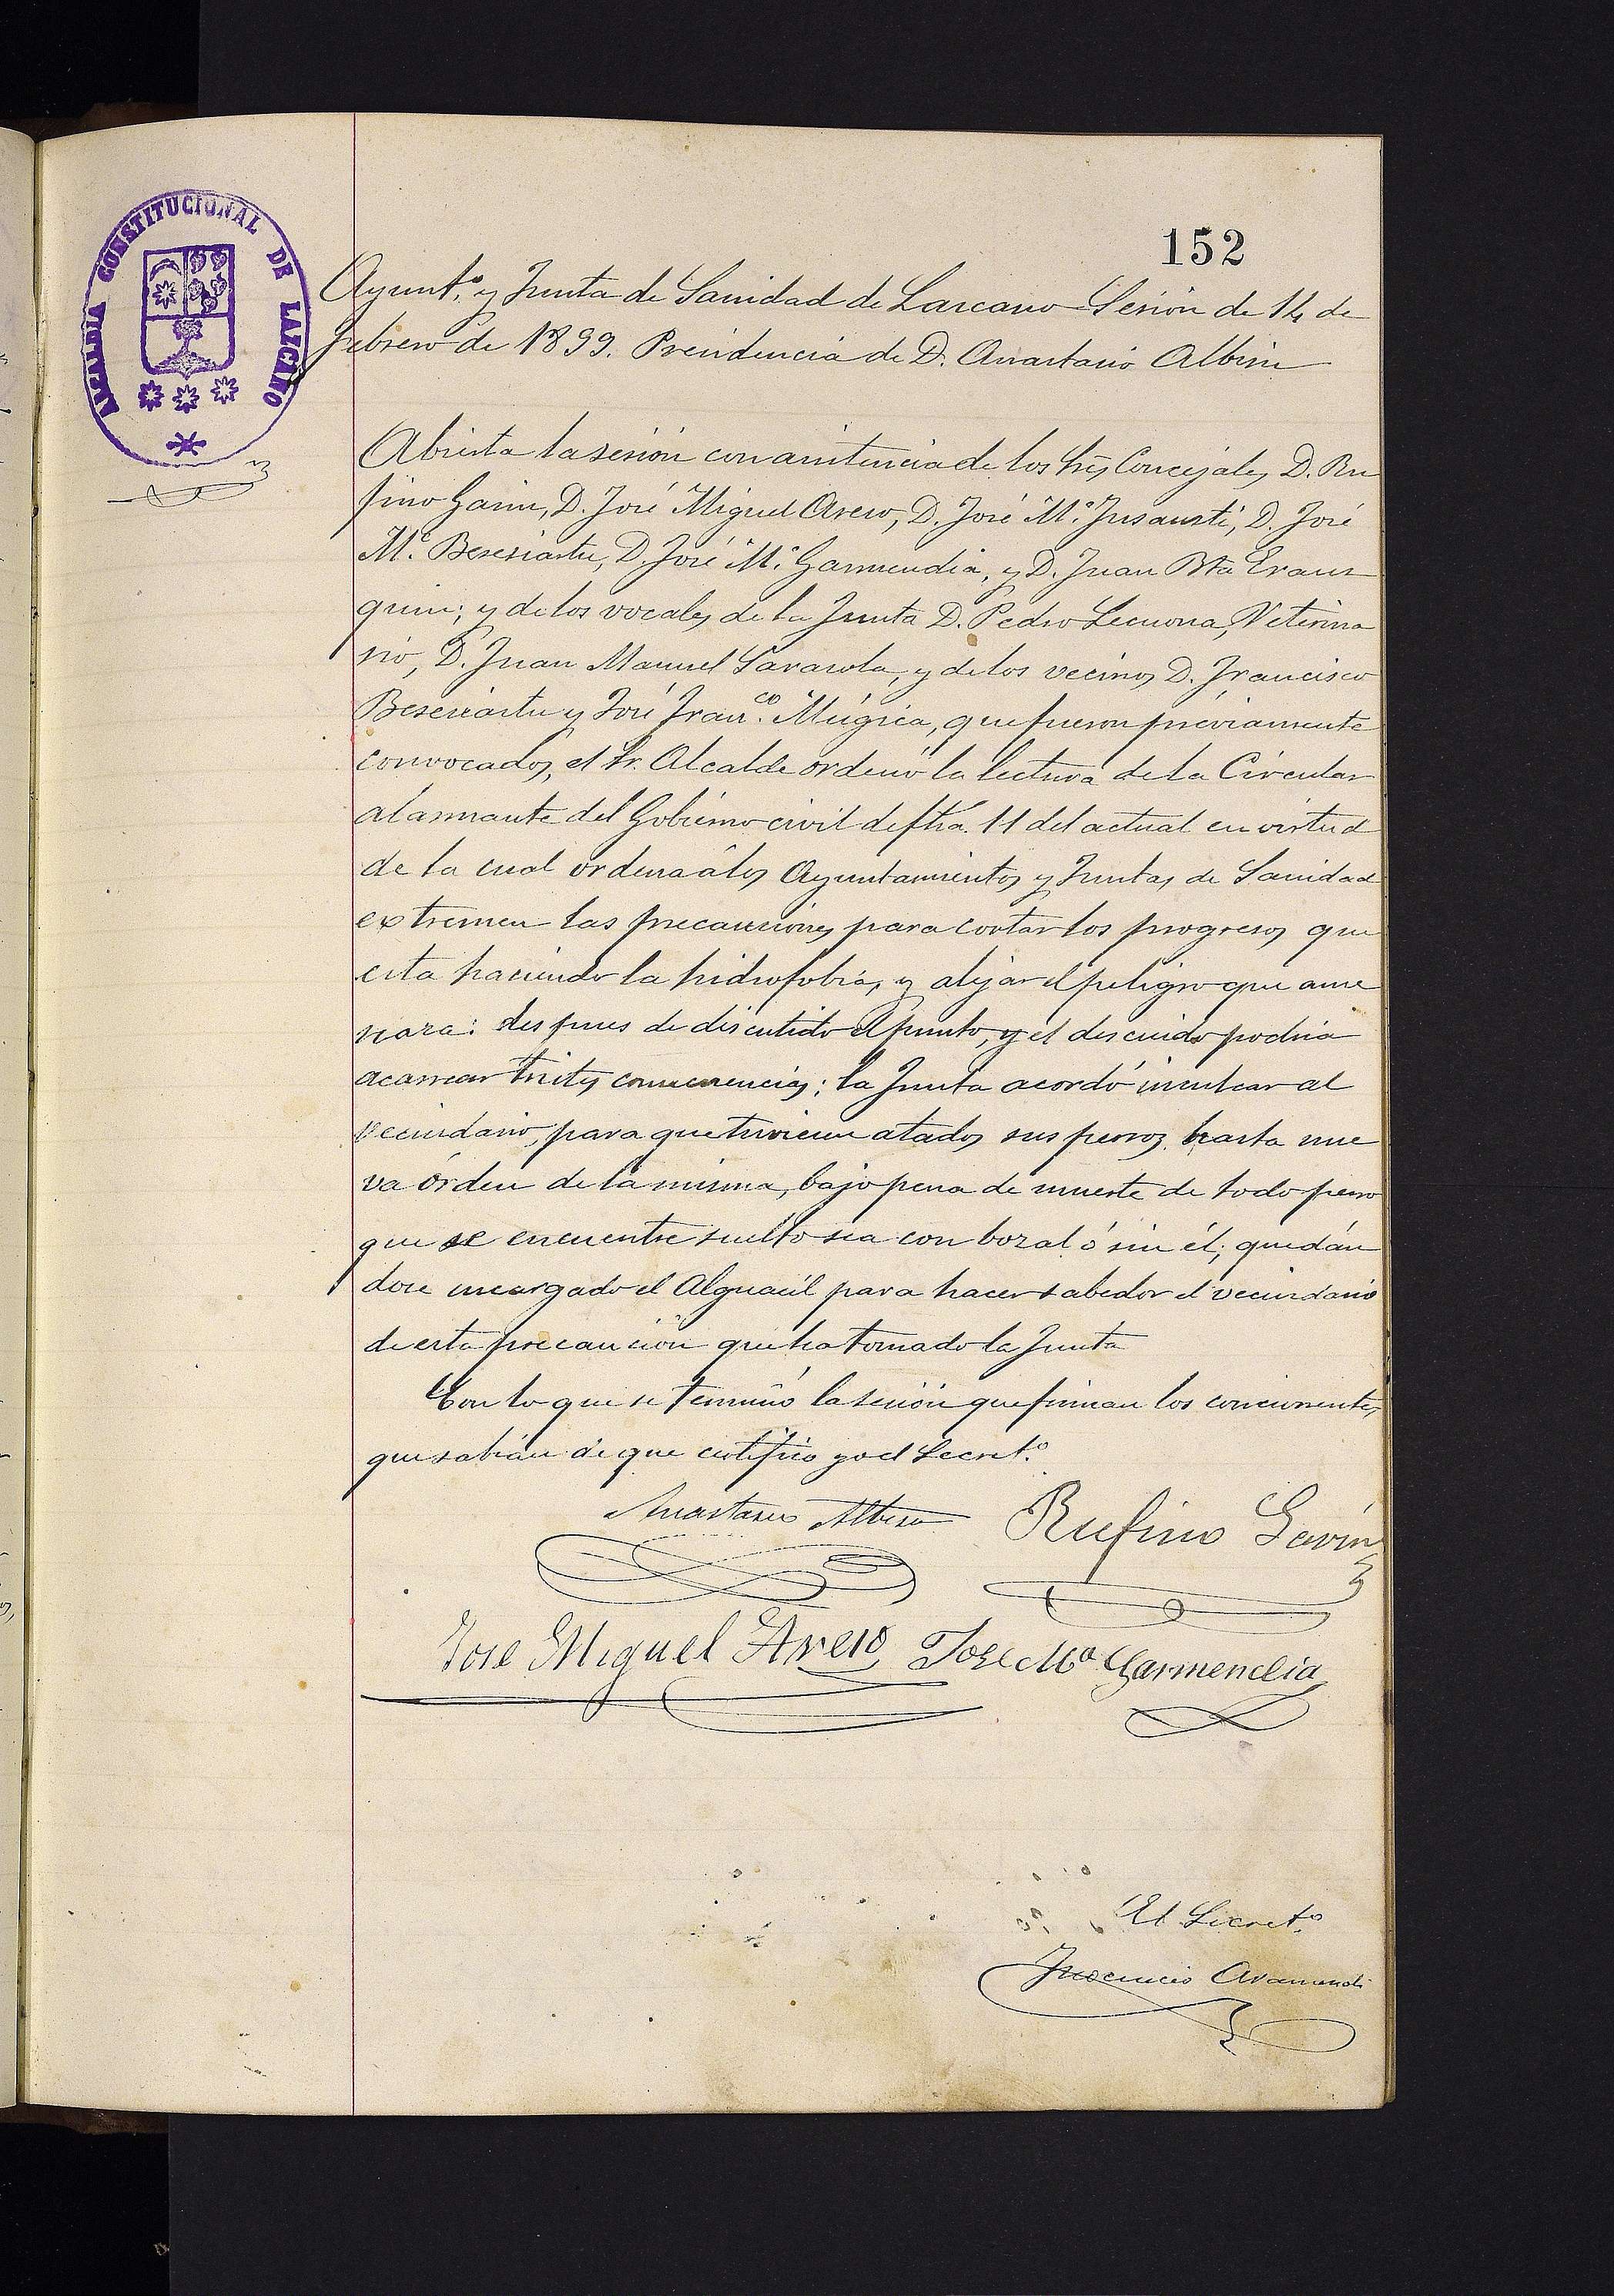 152
ALCALDIA CONSTITUCIONAL DE LAZCANO
Ayunt.º y Junta de Sanidad de Lazcano Sesión de 14 de
Febrero de 1899. Presidencia de D. Anastasio Albisu
Abierta la sesión con asistencia de los Sres Concejales D. Ru
fino Garin, D. José Miguel Areso, D. José M.ª Insausti, D. José
M.ª Beseriartu, D. José M.ª Garmendia, y D. Juan Bta Eraus
quin; y de los vocales de la Junta D. Pedro Lecuona, Veterina
rio, D. Juan Manuel Sarasola, y de los vecinos D. Francisco
Beseriartu y José Fran.co Múgica, que fueron préviamente
convocados, el Sr. Alcalde ordenó la lectura de la Circular
alarmante del Gobierno civil de fha. 11 del actual en virtud
de la cual ordena á los Ayuntamientos y Juntas de Sanidad
extremen las precauciones para cortar los progresos que
esta haciendo la hidrofobia, y alejar el peligro que ame
naza: despues de discutido el punto, y el descuido podria
acarrear tristes consecuencias; la Junta acordó inculcar al
vecindario, para que tuviesen atados sus perros hasta nue
va órden de la misma, bajo pena de muerte de todo perro
que se encuentre suelto sea con bozal ó sin él; quedán
dose encargado el Alguacil para hacer sabedor el vecindario
de esta precaución que ha tomado la Junta
Con lo que se terminó la sesión que firman los concurrentes
que sabían de que certifico yo el Secret.º
Anastasio Albisu Rufino Garin
Jose Miguel Areso Jose Mª Garmendia
El Secret.º
Inocencio Aramendi